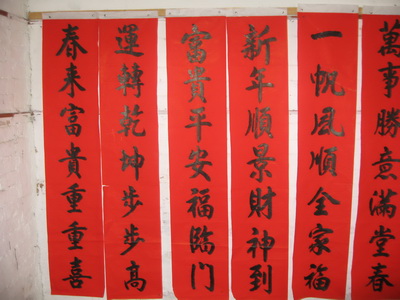 萬事勝意滿堂春
一帆風順全家福
新年順景財神到
富貴平安福臨门
運轉乾坤步步高
春来富貴重重喜